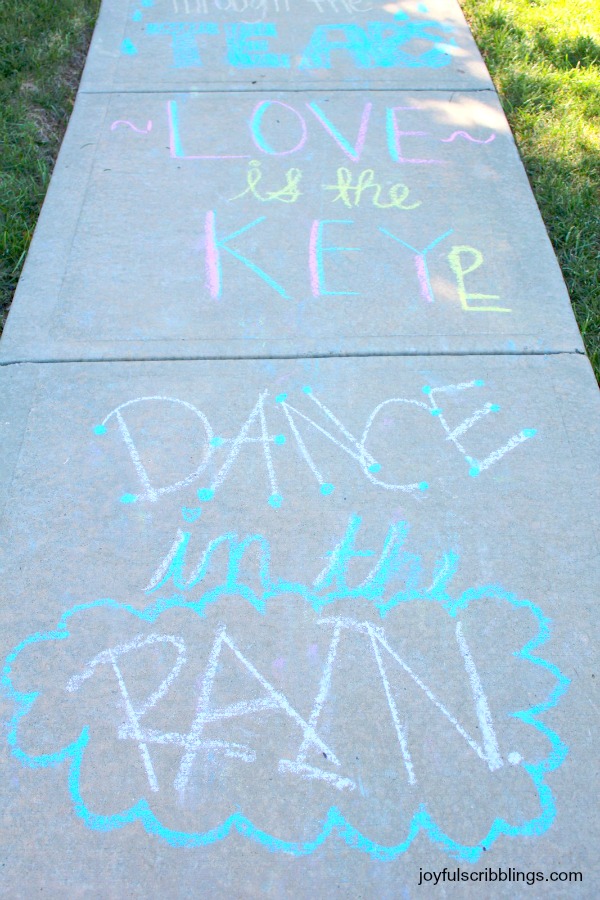 through the
TEARS
~LOVE~
is the
KEY
DANCE
in the
RAIN.
joyfulscribblings.com